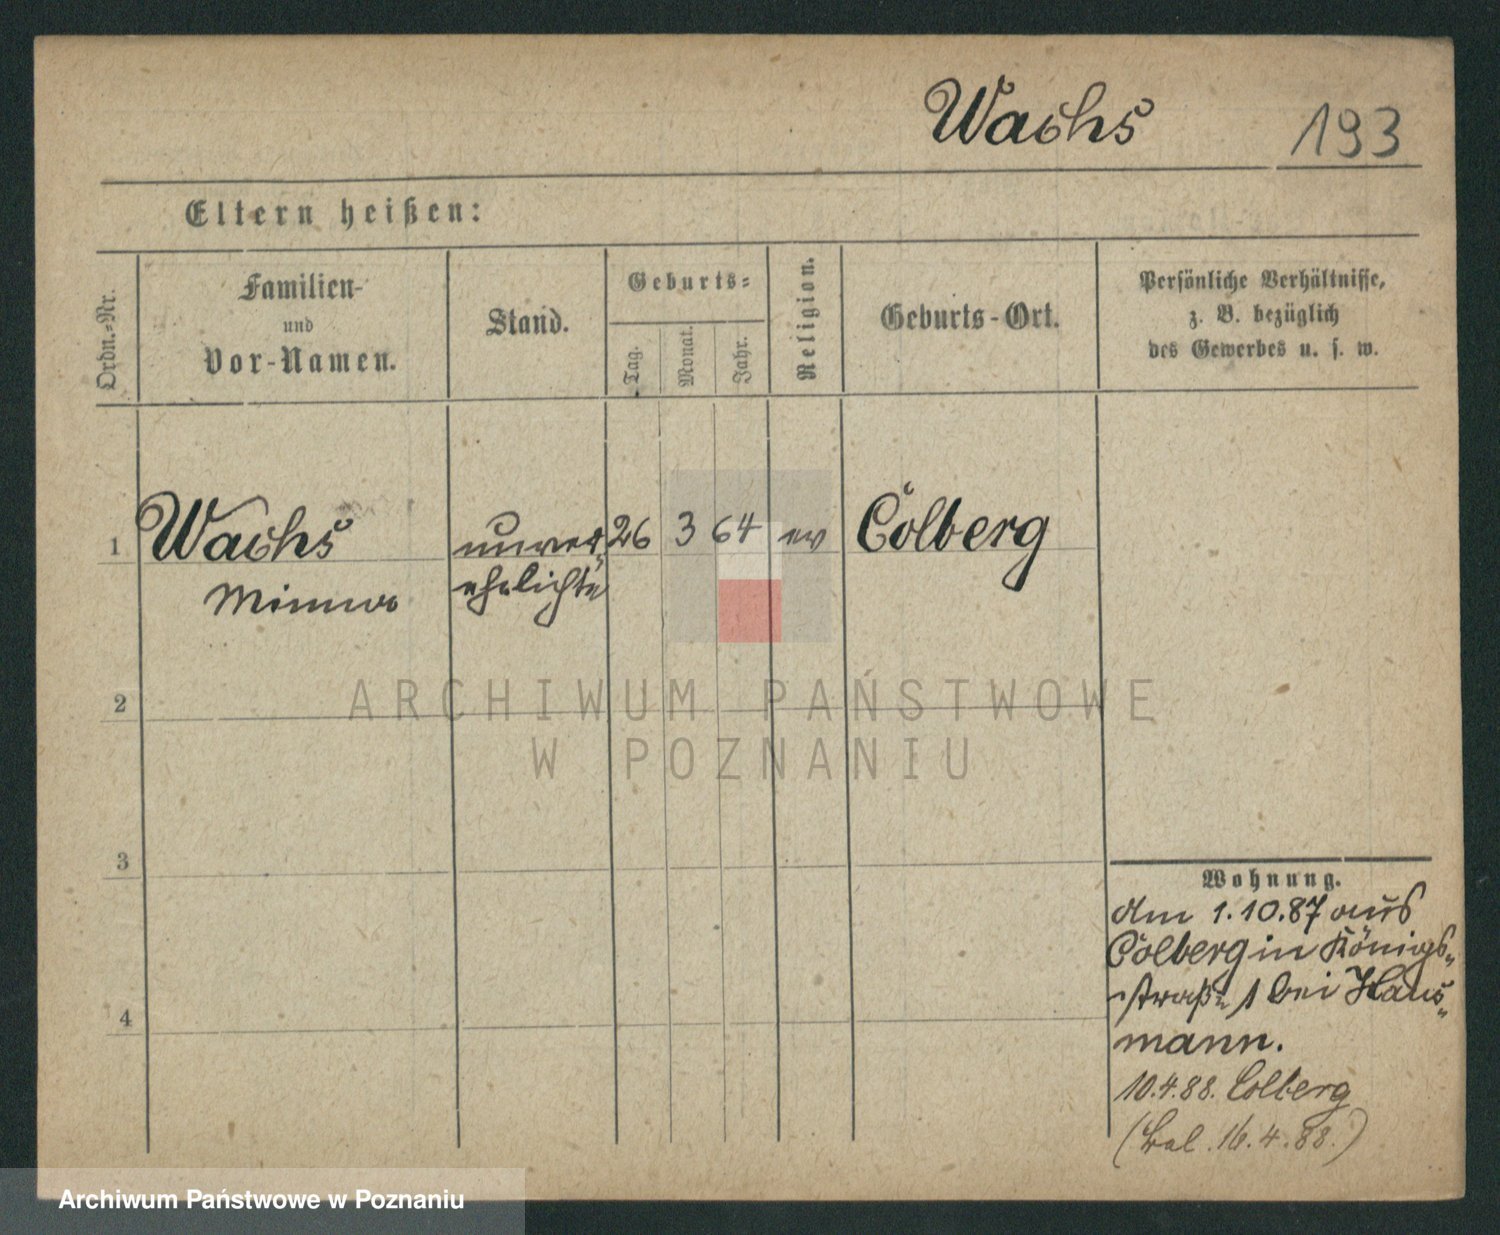 Wachs 193
Eltern heißen:
Ordn.-Nr.
Familien-
und
Vor-Namen.
Stand.
Geburts-
Tag.
Monat.
Jahr.
Religion.
Geburts-Ort.
Persönliche Verhältnisse,
z. B. bezüglich
des Gewerbes u. s. w.
1 Wachs unver- 26 3 64 ev Colberg
Minna ehelichte
2
3
4
Wohnung.
Am 1.10.87 aus
Colberg in Königs-
straße 1 bei Haus-
mann.
10.4.88. Colberg
16.4.88.)
ARCHIWUM PAŃSTWOWE
W POZNANIU
Archiwum Państwowe w Poznaniu